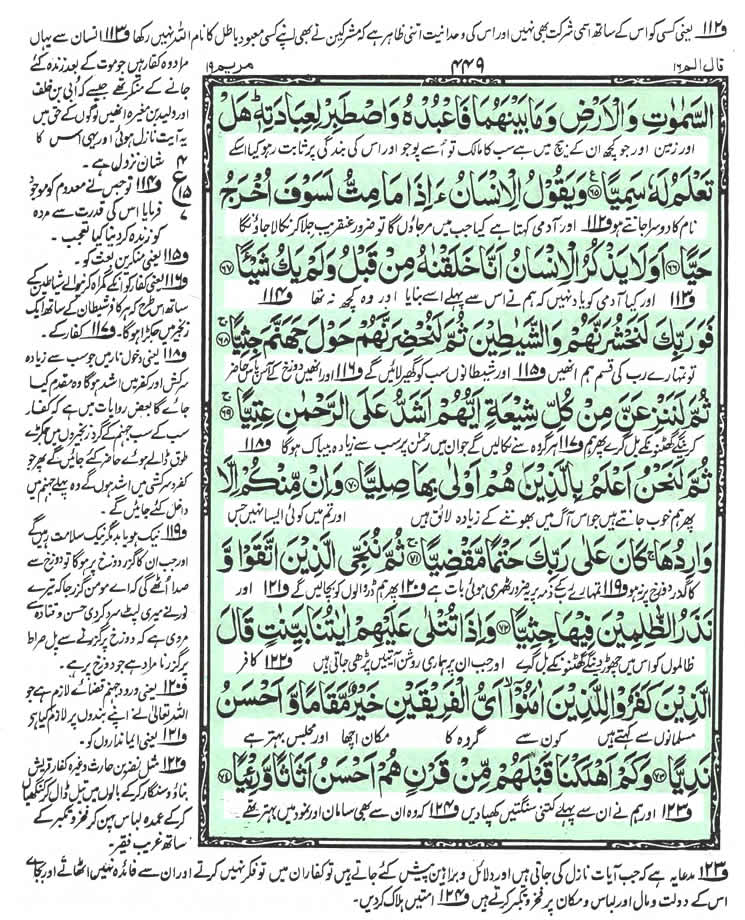 ف۱۱۲ یعنی کسی کو اس کے ساتھ اسمی شرکت بھی نہیں اور اس کی وحدانیت اتنی ظاہر ہے کہ مشرکین نے بھی اپنے کسی معبود باطل کا نام اللہ نہیں رکھا ف۱۱۳ انسان سے یہاں
قال الم ۱۶
۴۴۹
مریم ۱۹
السَّمٰوٰتِ وَالْاَرْضِ وَمَا بَيْنَهُمَا فَاعْبُدْهُ وَاصْطَبِرْ لِعِبَادَتِهٖ ؕ هَلْ
اور زمین اور جو کچھ ان کے بیچ میں ہے سب کا مالک تو اُسے پوجو اور اس کی بندگی پر ثابت رہو کیا اسکے
تَعْلَمُ لَهٗ سَمِيًّا ﴿۶۵﴾ وَيَقُوْلُ الْاِنْسَانُ ءَاِذَا مَا مِتُّ لَسَوْفَ اُخْرَجُ
نام کا دوسرا جانتے ہو ف۱۱۲ اور آدمی کہتا ہے کیا جب میں مر جاؤں گا تو ضرور عنقریب جلا کر نکالا جاؤں گا
حَيًّا ﴿۶۶﴾ اَوَلَا يَذْكُرُ الْاِنْسَانُ اَنَّا خَلَقْنٰهُ مِنْ قَبْلُ وَلَمْ يَكُ شَيْـًٔا ﴿۶۷﴾
ف۱۱۳ اور کیا آدمی کو یاد نہیں کہ ہم نے اس سے پہلے اسے بنایا اور وہ کچھ نہ تھا ف۱۱۴
فَوَرَبِّكَ لَنَحْشُرَنَّهُمْ وَالشَّيٰطِيْنَ ثُمَّ لَنُحْضِرَنَّهُمْ حَوْلَ جَهَنَّمَ جِثِيًّا ﴿۶۸﴾ ج
تو تمہارے رب کی قسم ہم انھیں ف۱۱۵ اور شیطانوں سب کو گھیر لائیں گے ف۱۱۶ اور انھیں دوزخ کے آس پاس حاضر
ثُمَّ لَنَنْزِعَنَّ مِنْ كُلِّ شِيْعَةٍ اَيُّهُمْ اَشَدُّ عَلَى الرَّحْمٰنِ عِتِيًّا ﴿۶۹﴾ ج
کرینگے گھٹنوں کے بل گرے پھر ہم ف۱۱۷ ہر گروہ سے نکالیں گے جو ان میں رحمٰن پر سب سے زیادہ بیباک ہوگا ف۱۱۸
ثُمَّ لَنَحْنُ اَعْلَمُ بِالَّذِيْنَ هُمْ اَوْلٰى بِهَا صِلِيًّا ﴿۷۰﴾ وَاِنْ مِّنْكُمْ اِلَّا
پھر ہم خوب جانتے ہیں جو اس آگ میں بھوننے کے زیادہ لائق ہیں اور تم میں کوئی ایسا نہیں جس
وَارِدُهَا ج كَانَ عَلٰى رَبِّكَ حَتْمًا مَّقْضِيًّا ﴿۷۱﴾ ج ثُمَّ نُنَجِّى الَّذِيْنَ اتَّقَوْا وَّ
کا گذر دوزخ پر نہ ہو ف۱۱۹ تمہارے رب کے ذمہ پر یہ ضرور ٹھہری ہوئی بات ہے ف۱۲۰ پھر ہم ڈر والوں کو بچالیں گے ف۱۲۱ اور
نَذَرُ الظّٰلِمِيْنَ فِيْهَا جِثِيًّا ﴿۷۲﴾ وَاِذَا تُتْلٰى عَلَيْهِمْ اٰيٰتُنَا بَيِّنٰتٍ قَالَ
ظالموں کو اس میں چھوڑ دینگے گھٹنوں کے بل گرے اور جب ان پر ہماری روشن آیتیں پڑھی جاتی ہیں ف۱۲۲ کافر
الَّذِيْنَ كَفَرُوْا لِلَّذِيْنَ اٰمَنُوْۤا اَىُّ الْفَرِيْقَيْنِ خَيْرٌ مَّقَامًا وَّاَحْسَنُ
مسلمانوں سے کہتے ہیں کون سے گروہ کا مکان اچھا اور مجلس بہتر ہے
نَدِيًّا ﴿۷۳﴾ وَكَمْ اَهْلَكْنَا قَبْلَهُمْ مِّنْ قَرْنٍ هُمْ اَحْسَنُ اَثَاثًا وَّرِءْيًا ﴿۷۴﴾
ف۱۲۳ اور ہم نے ان سے پہلے کتنی سنگتیں کھپادیں ف۱۲۴ کہ وہ ان سے بھی سامان اور نمود میں بہتر تھے
مراد وہ کفار ہیں جو موت کے بعد زندہ کئے
جانے کے منکر تھے جیسے کہ اُبی بن خلف
اور ولید بن مغیرہ انھیں لوگوں کے حق میں
یہ آیت نازل ہوئی اور یہی اس کا
شان نزول ہے ۔
۴
ع
۱۵
۷
ف۱۱۴ تو جس نے معدوم کو موجود
فرمایا اس کی قدرت سے مردہ
کو زندہ کردینا کیا تعجب ۔
ف۱۱۵ یعنی منکرین بعث کو ۔
ف۱۱۶ یعنی کفار کو انکے گمراہ کرنیوالے شیاطین کے
ساتھ اس طرح کہ ہر کافر شیطان کے ساتھ ایک
زنجیر میں جکڑا ہوگا ۔ ف۱۱۷ کفار کے ۔
ف۱۱۸ یعنی دخول نار میں جو سب سے زیادہ
سرکش اور کفر میں اشد ہوگا وہ مقدم کیا
جائے گا بعض روایات میں ہے کہ کفار
سب کے سب جہنم کے گرد زنجیروں میں جکڑے
طوق ڈالے ہوئے حاضر کئے جائیں گے پھر جو
کفر و سرکشی میں اشد ہوں گے وہ پہلے جہنم میں
داخل کئے جائیں گے ۔
ف۱۱۹ نیک ہو یا بد مگر نیک سلامت رہیں گے
اور جب ان کا گزر دوزخ پر ہوگا تو دوزخ سے
صدا اُٹھے گی کہ اے مومن گزر جا کہ تیرے
نور نے میری لپٹ سرد کردی حسن و قتادہ سے
مروی ہے کہ دوزخ پر گزرنے سے پل صراط
پر گزرنا مراد ہے جو دوزخ پر ہے ۔
ف۱۲۰ یعنی ورود جہنم قضائے لازم ہے جو
اللہ تعالٰی نے اپنے بندوں پر لازم کیا ہے
ف۱۲۱ یعنی ایمانداروں کو ۔
ف۱۲۲ مثل نضر بن حارث وغیرہ کفار قریش
بناؤ سنگار کرکے بالوں میں تیل ڈال کر کنگھیاں
کرکے عمدہ لباس پہن کر فخر و تکبر کے
ساتھ غریب فقیر ۔
ف۱۲۳ مدعا یہ ہے کہ جب آیات نازل کی جاتی ہیں اور دلائل و براہین پیش کئے جاتے ہیں تو کفار ان میں تو فکر نہیں کرتے اور ان سے فائدہ نہیں اٹھاتے اور بجائے
اس کے دولت و مال اور لباس و مکان پر فخر و تکبر کرتے ہیں ف۱۲۴ امتیں ہلاک کردیں ۔